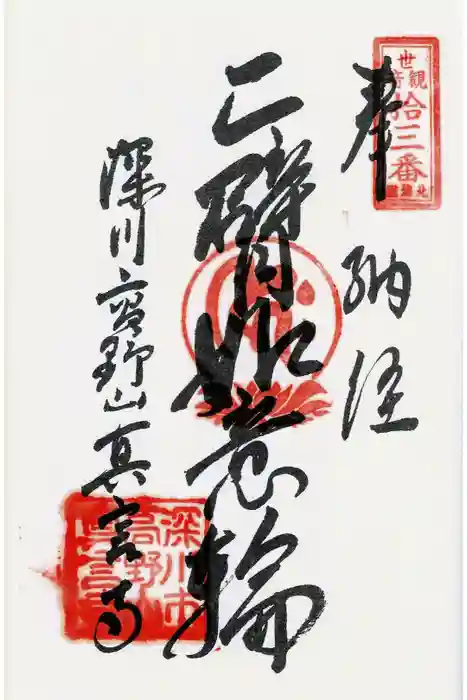 奉納経
二臂如意輪
深川高野山真言寺
観世音
拾三番
北海道
深川市
高野山
真言寺